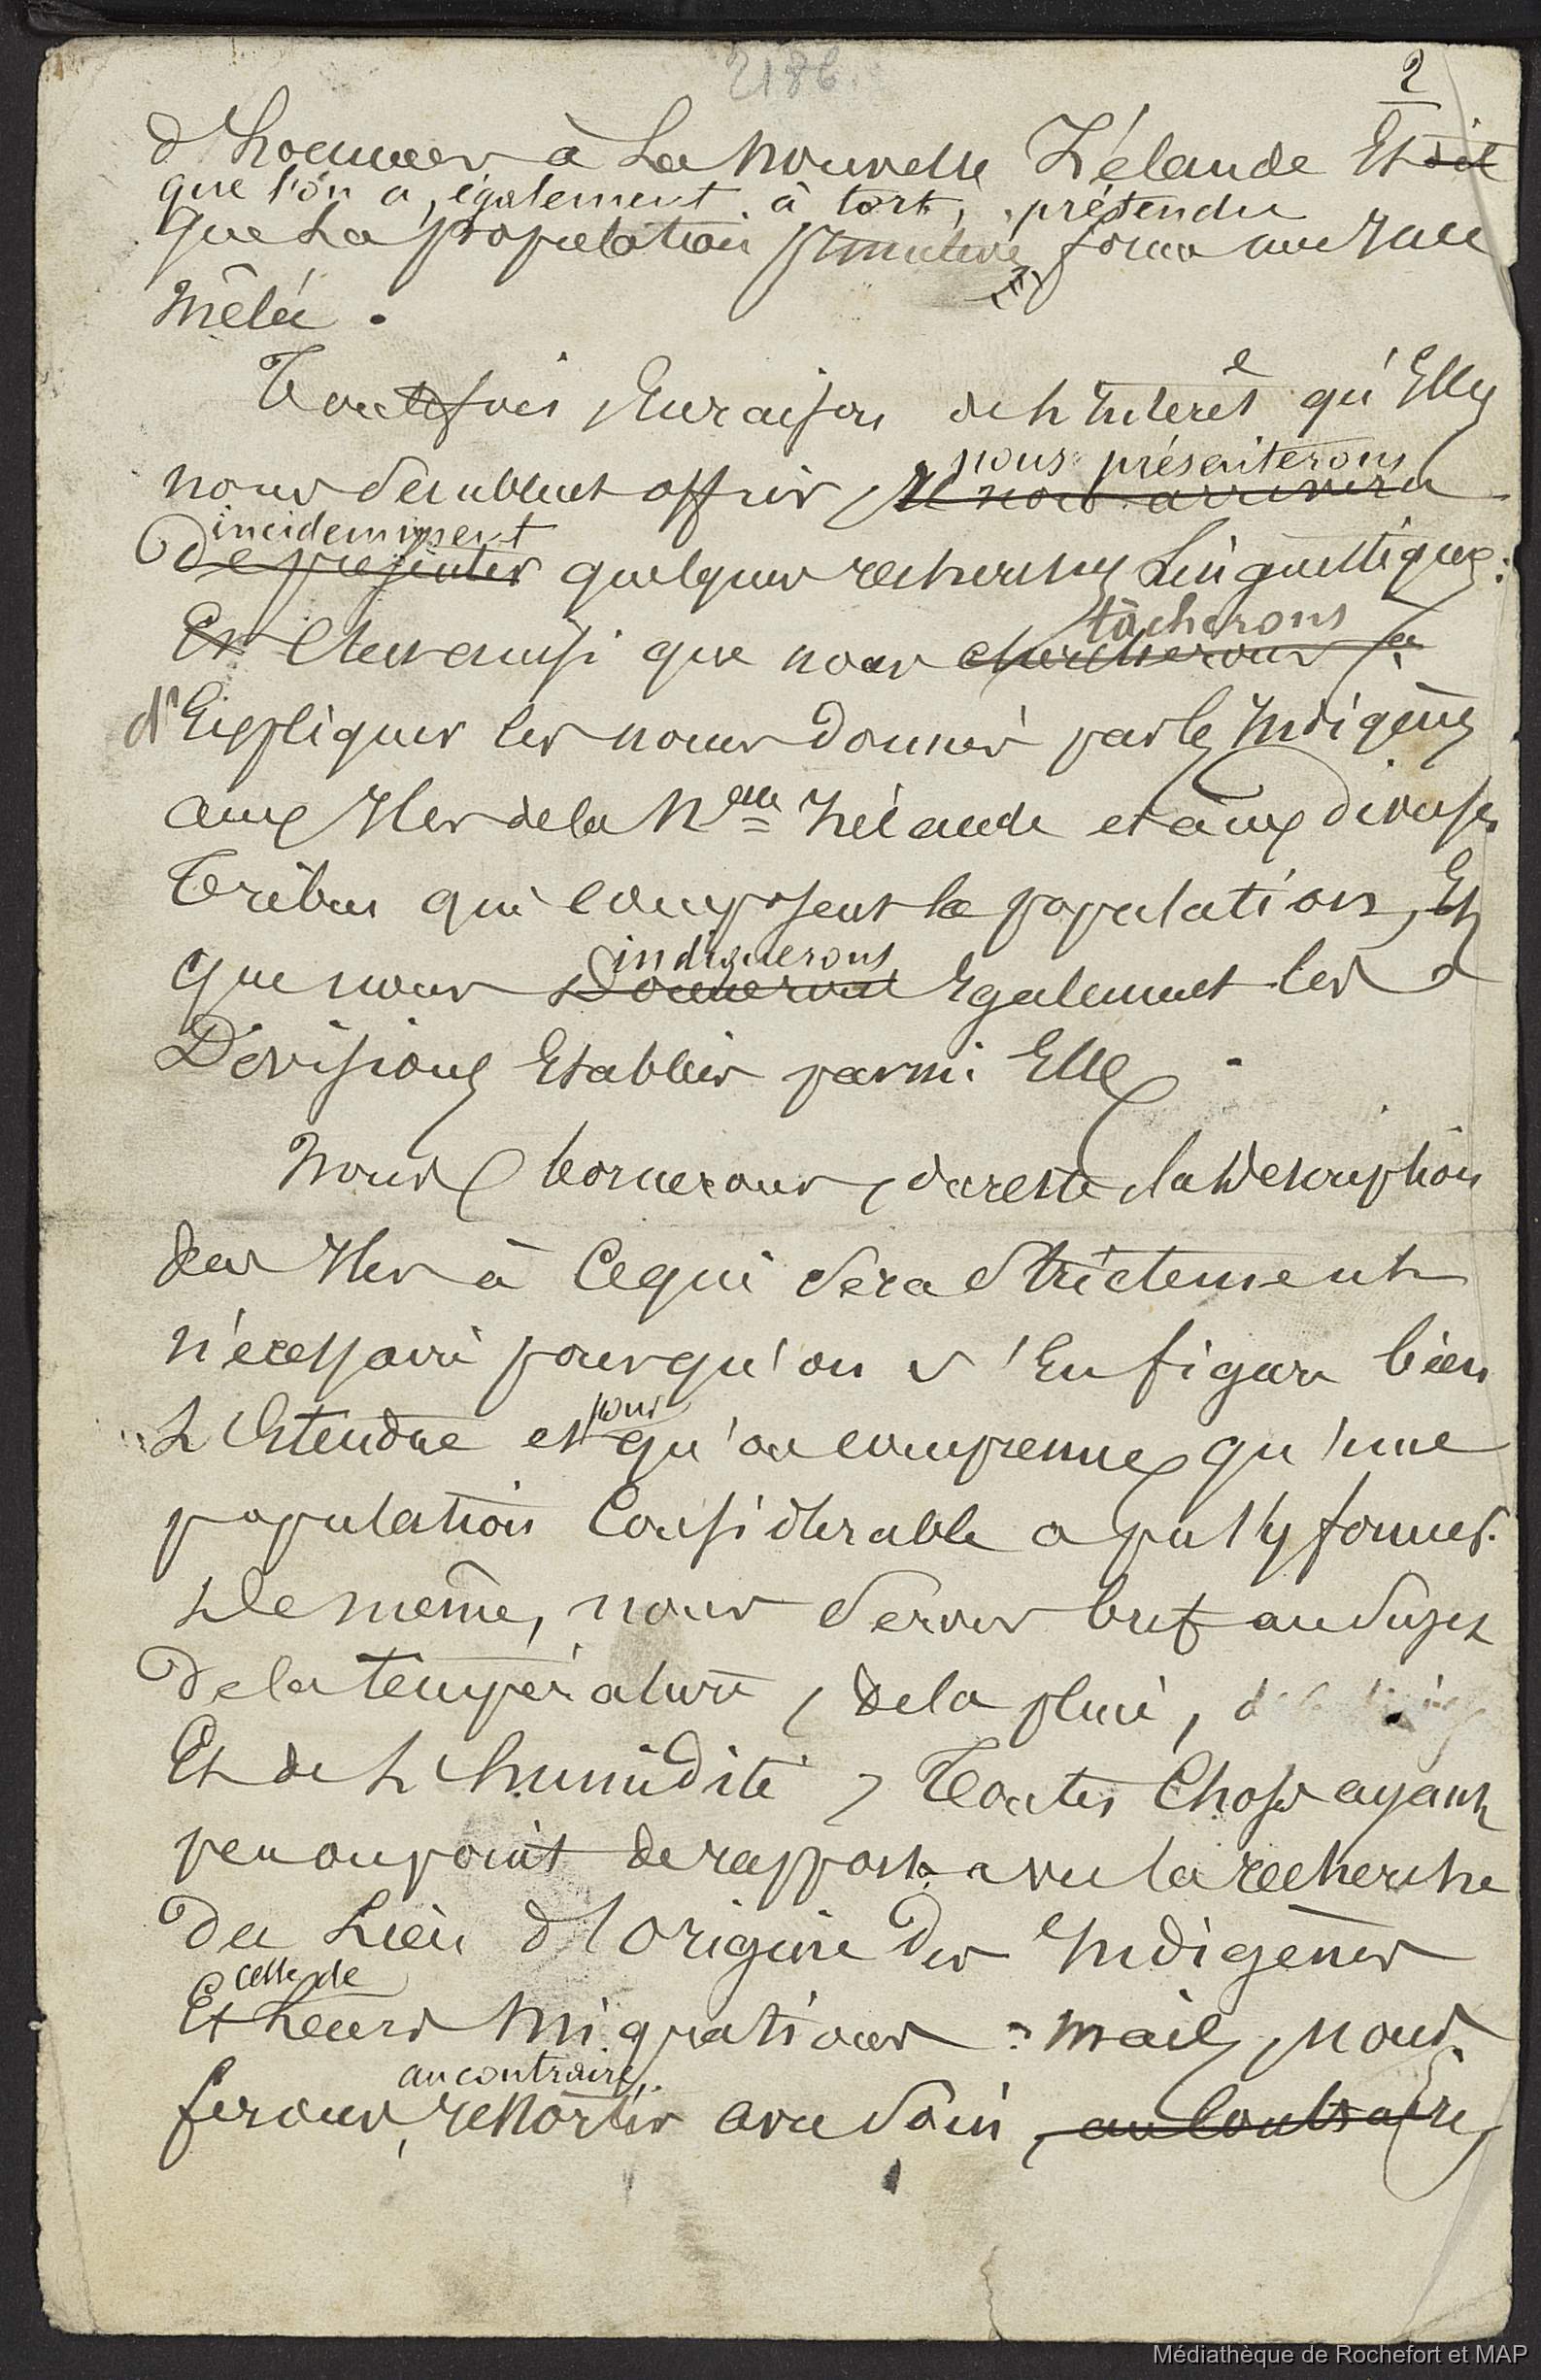 2186
2
d'hommes à la Nouvelle Zélande Et dit
que l'on a, également à tort, prétendu
que la population primitive forma une race
mêlée.
Toutefois, En raison de l'Intérêt qu'Elles
nous présenterons
nous semblent offrir, Il nous arrivera
incidemment
de présenter quelques recherches Linguistiques:
tâcherons
Et C'est ainsi que nous chercherons à
d'Expliquer les noms donnés par les Indigènes
aux Iles de la Nelle Zélande et aux diverses
Tribus qui composent la population, Et
indiquerons
que nous donnerons Egalement les
Divisions Etablies parmi Elles.
Nous bornerons, du reste, la Description
des Iles à Ce qui sera Strictement
nécessaire pour qu'on s'En figure bien
pour
L'Etendue et qu'on comprenne qu'une
population Considérable a pu s'y former.
De même, nous serons bref au sujet
de la température, de la pluie,
Et de L'humidité, Toutes Choses ayant
peu ou point de rapport avec la recherche
du Lieu d'Origine des Indigènes
celle de
Et Leurs Migrations: mais, nous
au contraire,
ferons, ressortir avec soin, au Contraire,
Médiathèque de Rochefort et MAP